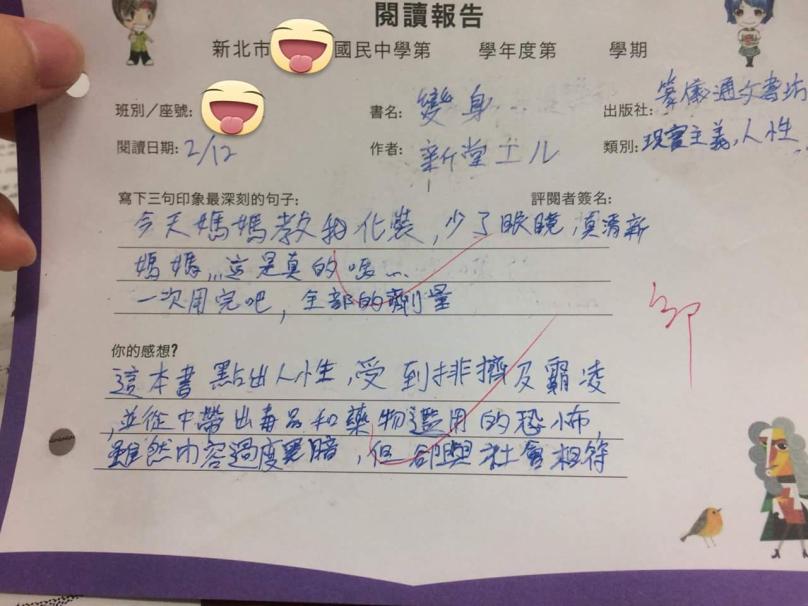 閱讀報告
新北市 國民中學第 學年度第 學期
班別／座號: 書名: 變身 出版社: 通文書坊
閱讀日期: 2/12 作者: 新堂エル 類別: 現實主義,人性
寫下三句印象最深刻的句子: 評閱者簽名:
今天媽媽教我化裝,少了眼鏡,真清新
媽媽,,,這是真的嗎...
一次用完吧,全部的劑量
鄒
你的感想?
這本書點出人性,受到排擠及霸凌
,並從中帶出毒品和藥物濫用的恐怖,
雖然內容過度黑暗,但卻與社會相符